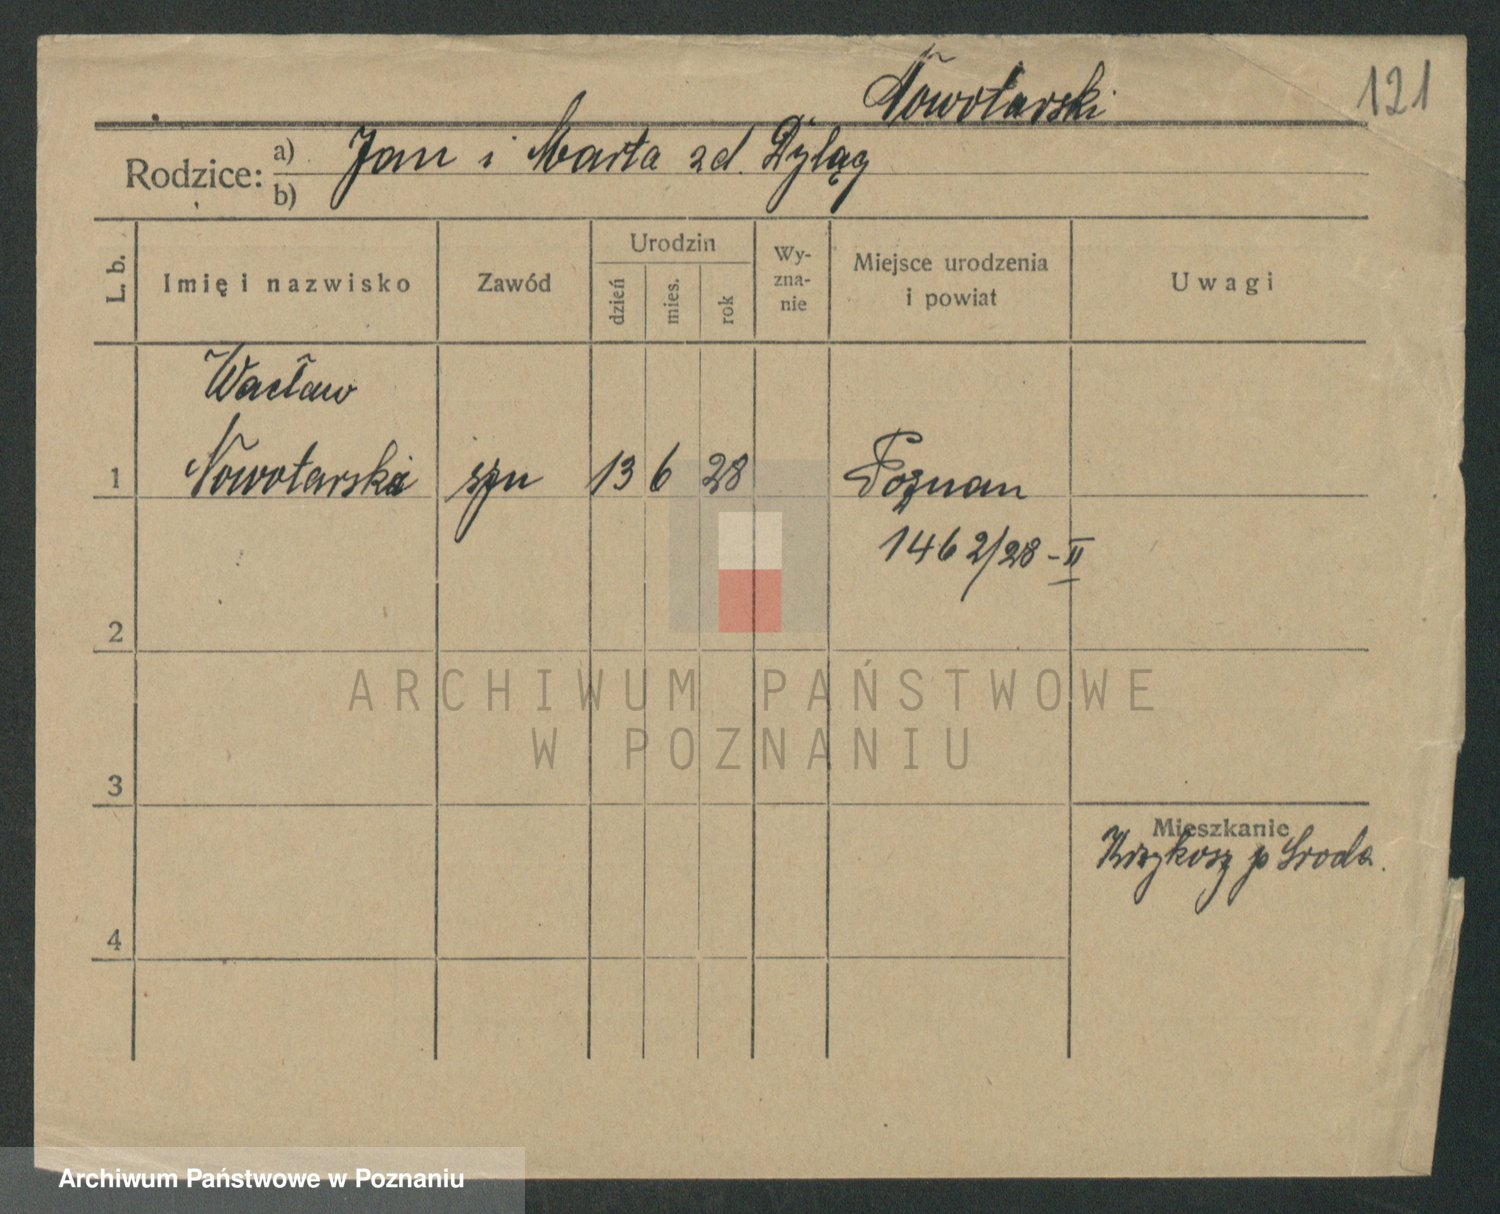 Nowotarski
121
Rodzice: a) Jan i Marta zd. Dyląg
b)
L. b. Imię i nazwisko Zawód Urodzin dzień mies. rok Wy-zna-nie Miejsce urodzenia i powiat Uwagi
Wacław
1 Nowotarski syn 13 6 28 Poznan
1462/28-II
2
ARCHIWUM PAŃSTWOWE
W POZNANIU
3
Mieszkanie
p Sroda.
4
Archiwum Państwowe w Poznaniu